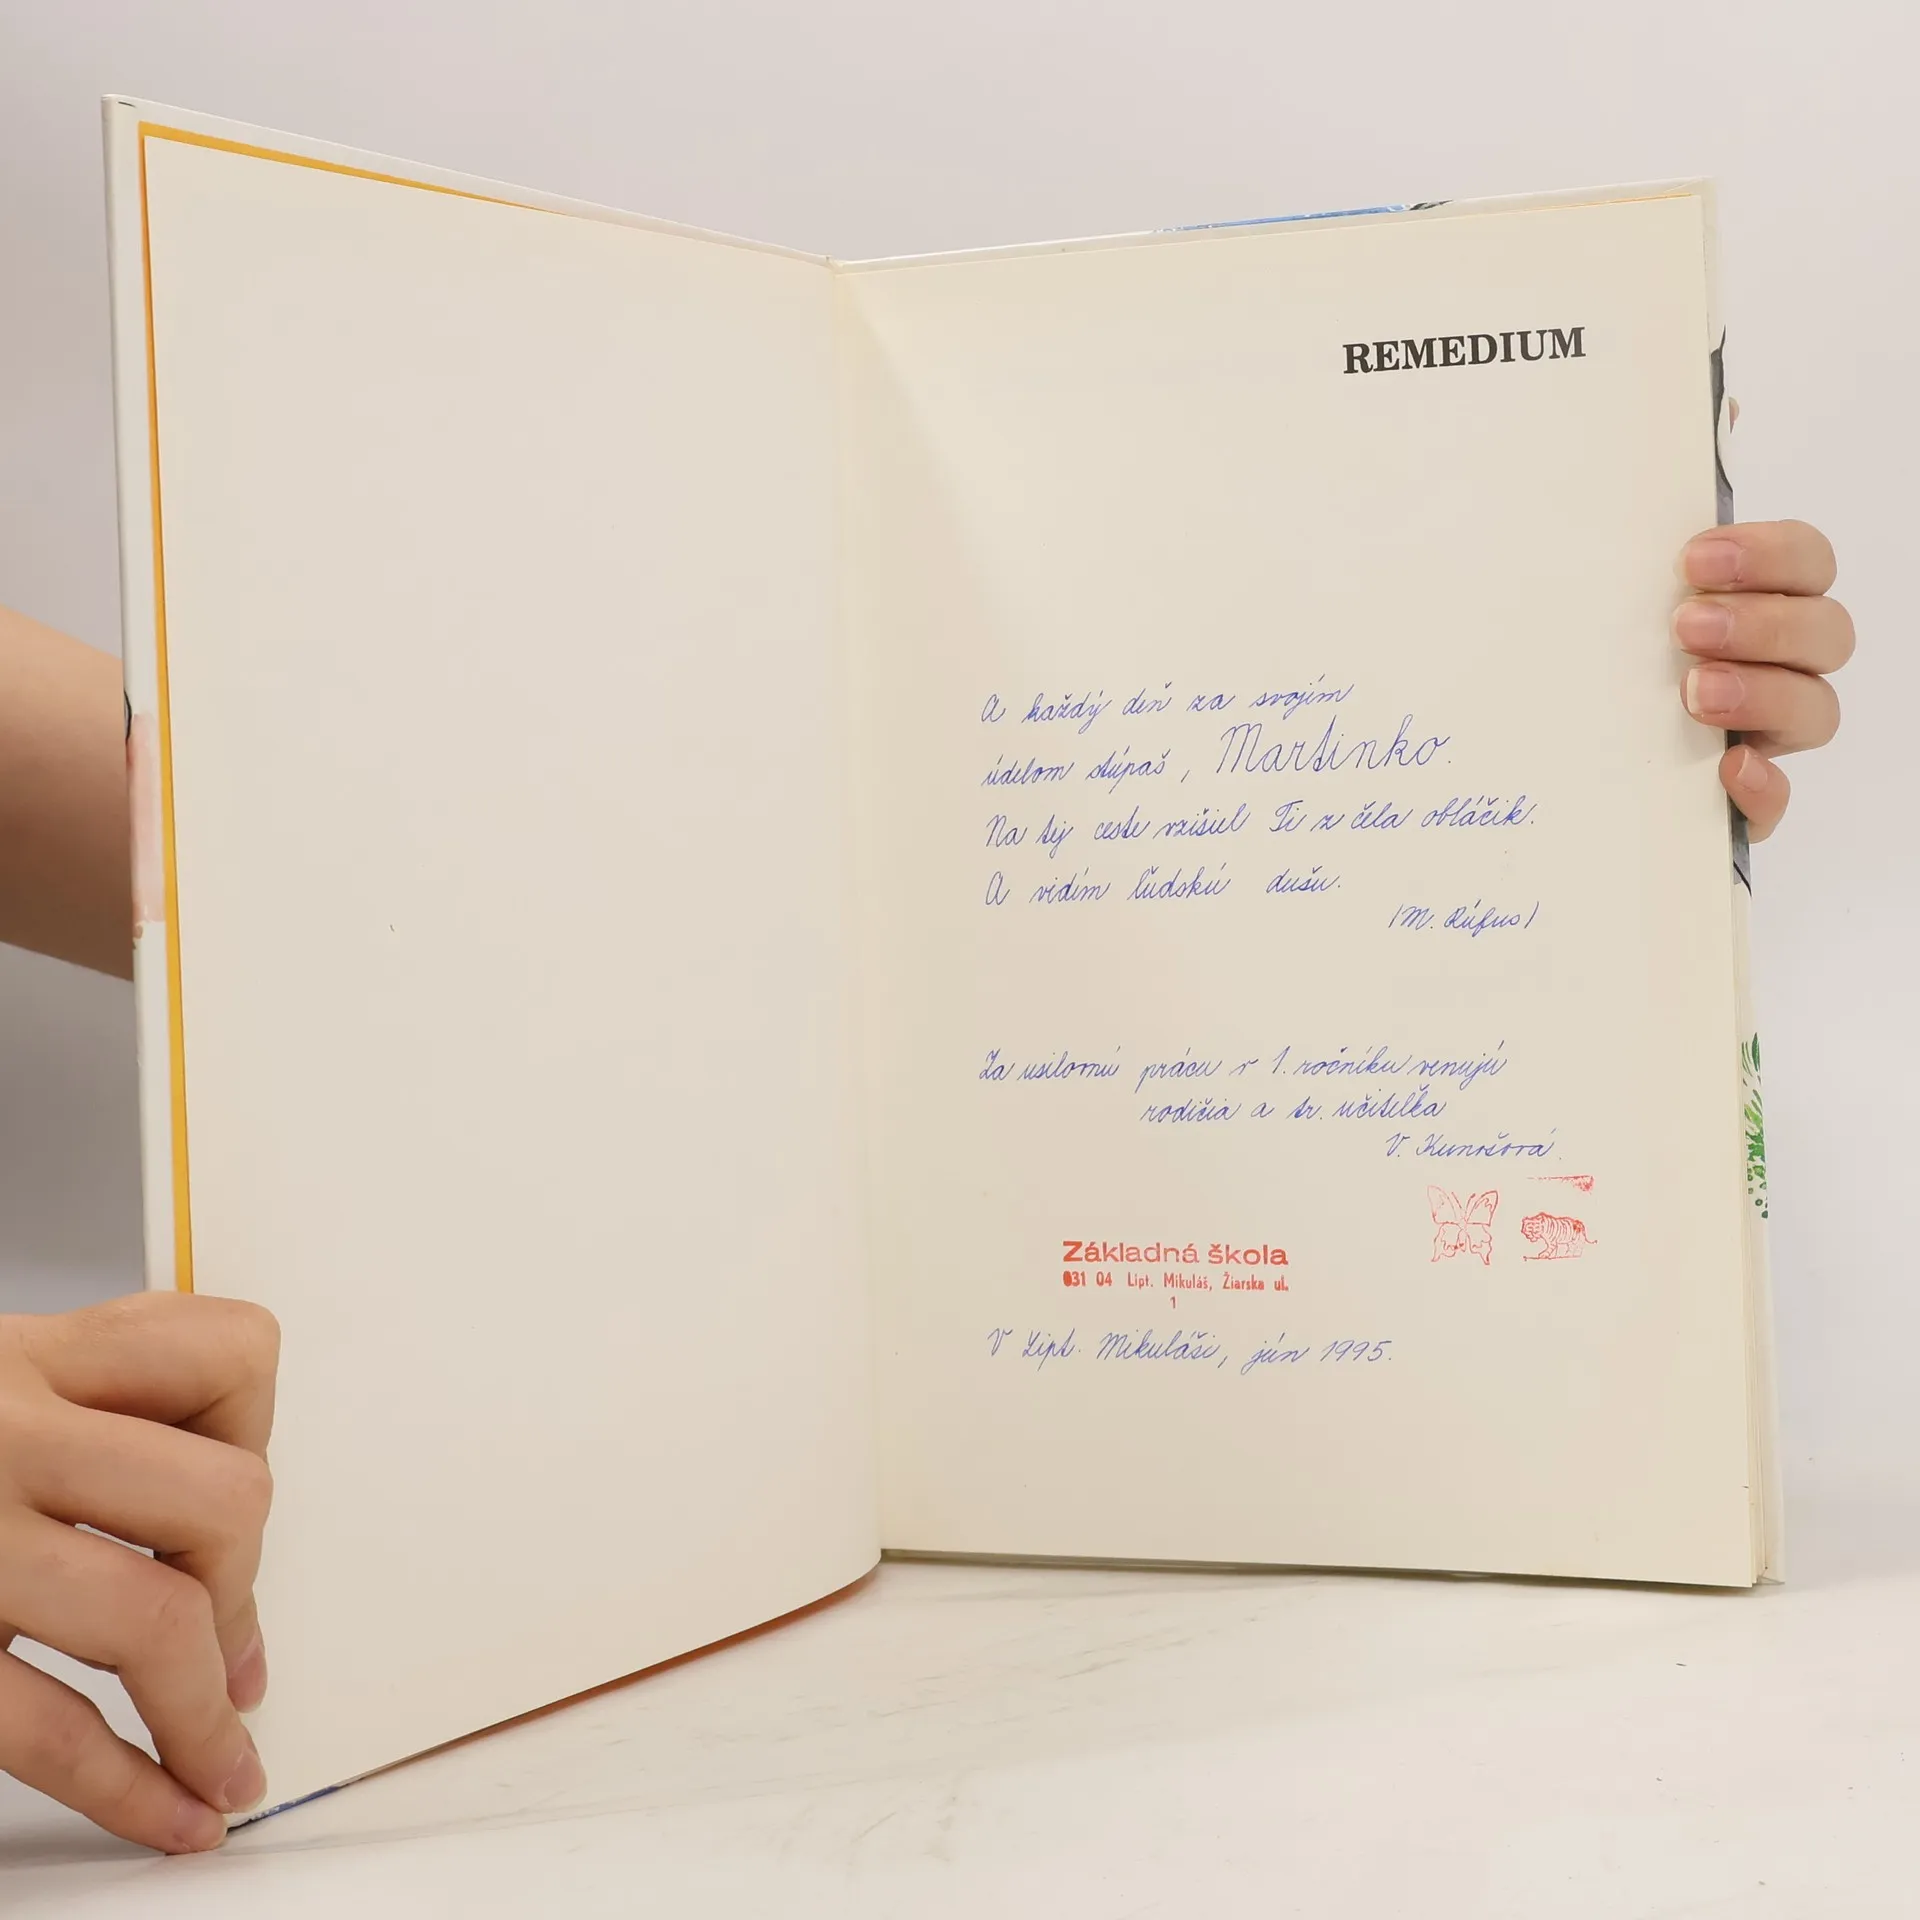 REMEDIUM
A každý deň za svojím
údelom stúpaš, Martinko.
Na tej ceste vzišiel Ti z čela obláčik.
A vidím ľudskú dušu.
/M. Rúfus/
Za usilovnú prácu v 1. ročníku venujú
rodičia a tr. učiteľka
V. Kunošová.
Základná škola
031 04 Lipt. Mikuláš, Žiarska ul.
1
V Lipt. Mikuláši, jún 1995.